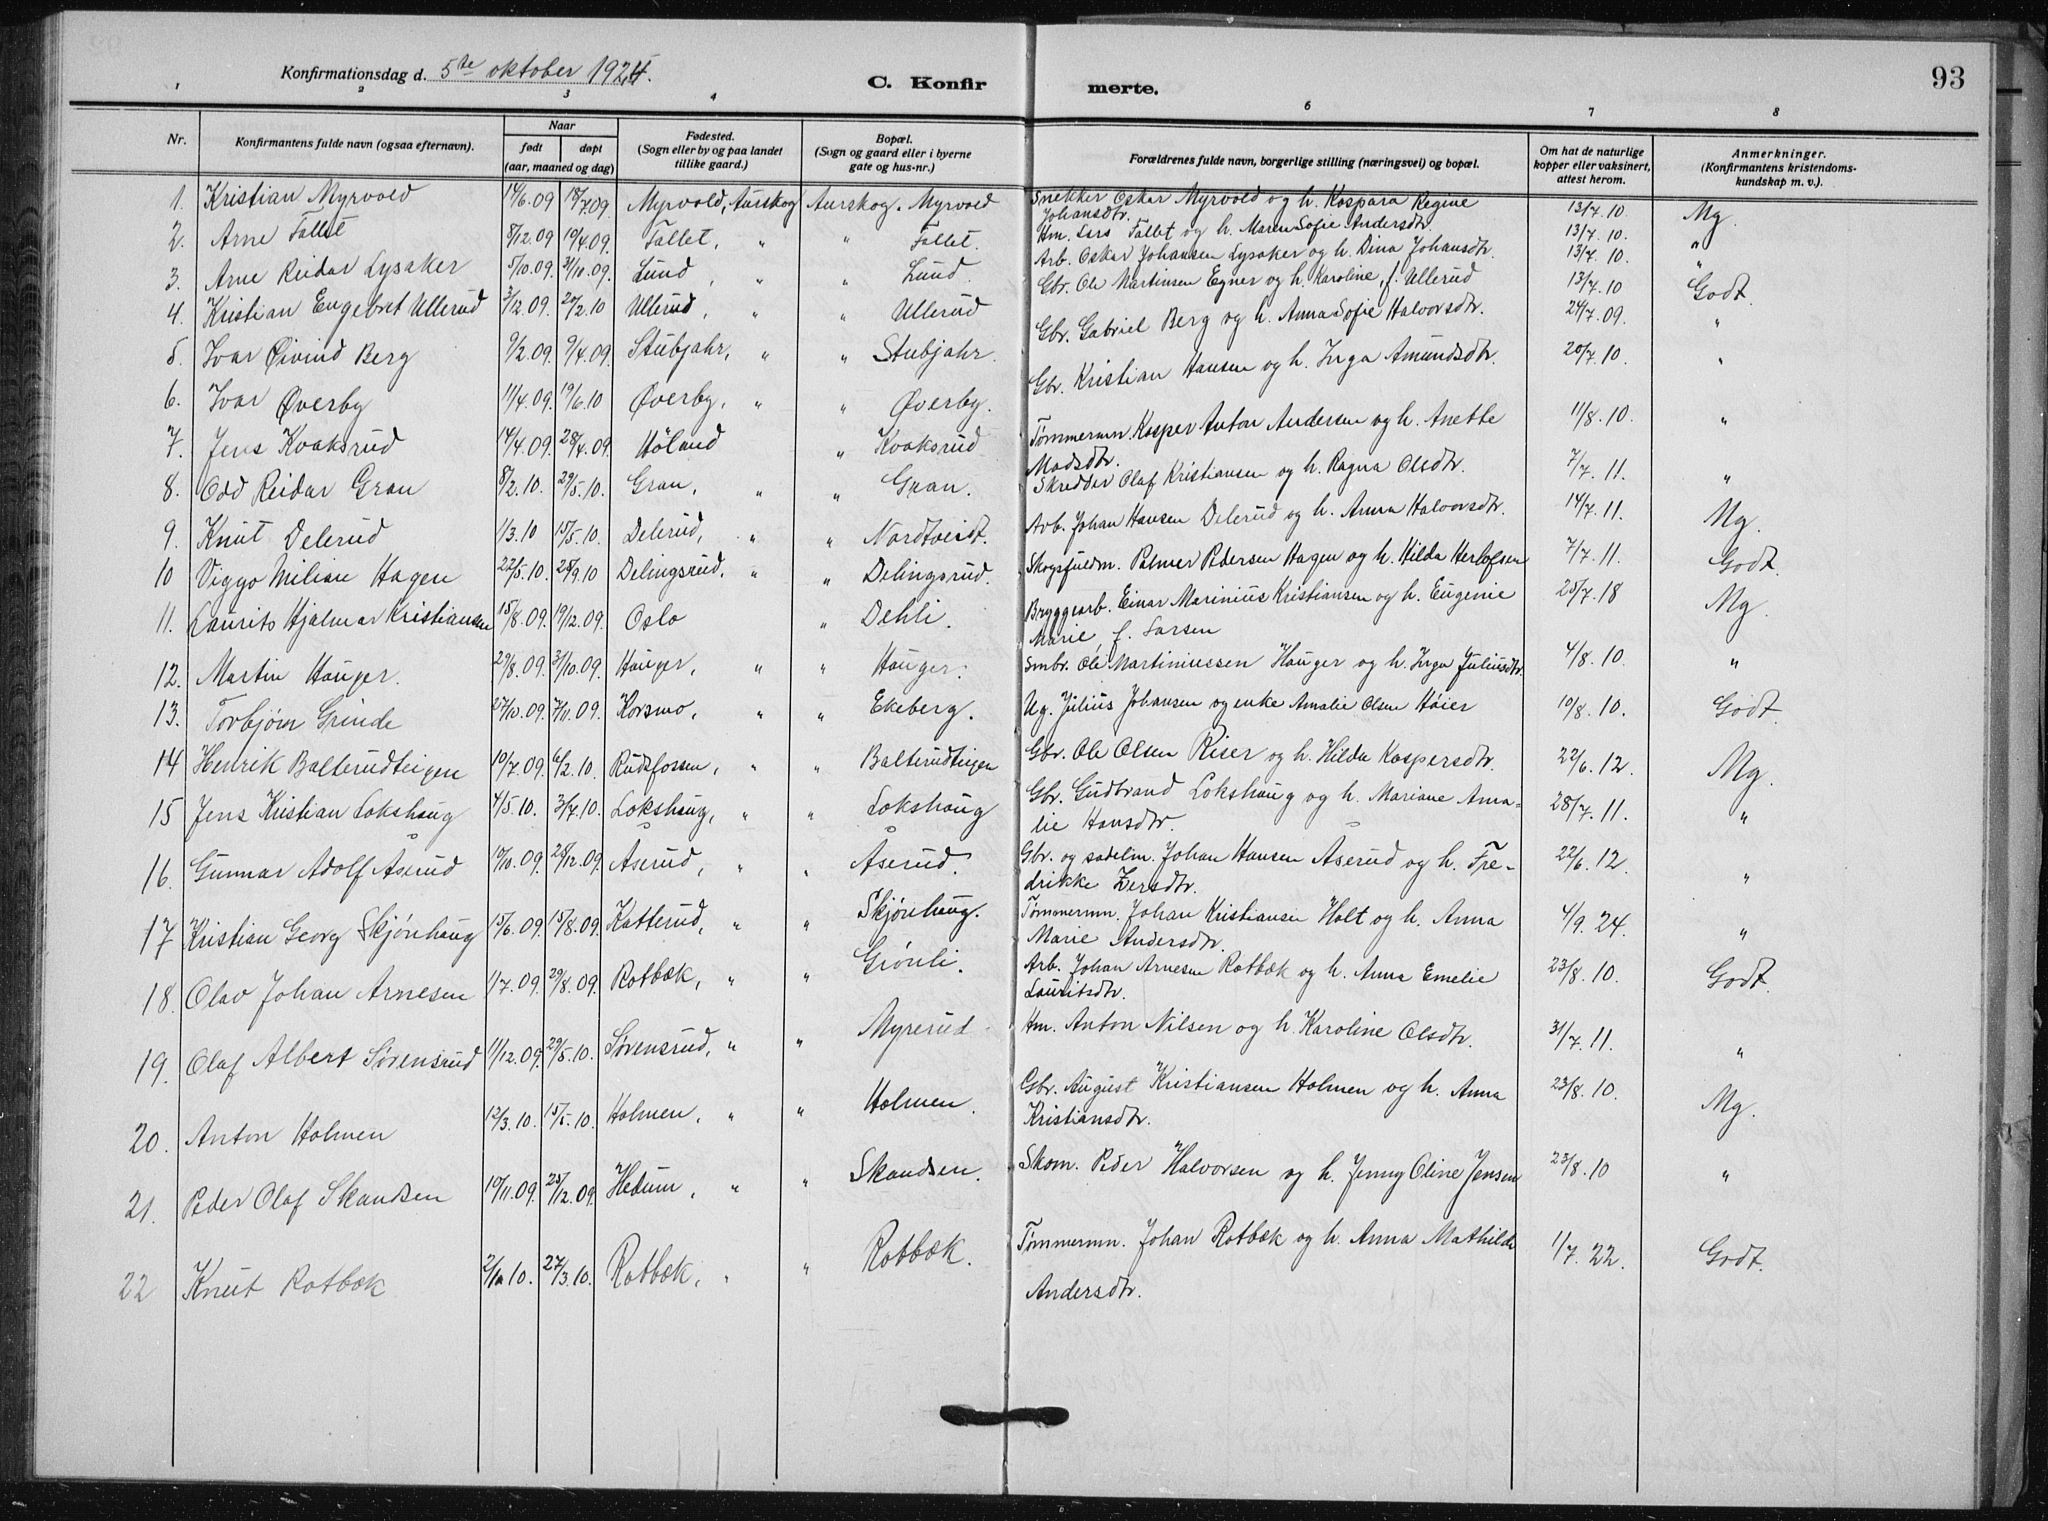 93
Konfirmationsdag d. 5te oktober 1924.
C. Konfir merte.
1 2 3 4 6 7 8
Nr. | Konfirmantens fulde navn (ogsaa efternavn). | Naar født døpt (aar, maaned og dag) | Fødested. (Sogn eller by og paa landet tillike gaard.) | Bopæl. (Sogn og gaard eller i byerne gate og hus-nr.) | Forældrenes fulde navn, borgerlige stilling (næringsvei) og bopæl. | Om hat de naturlige kopper eller vaksinert, attest herom. | Anmerkninger. (Konfirmantens kristendomskundskap m. v.).
1. Kristian Myrvold 14/6.09 18/7.09. Myrvold, Aurskog Aurskog. Myrvold Snekker Oskar Myrvold og h. Kaspara Regine Johansdtr. 13/7.10. Mg.
2. Arne Tallet 8/12.09 19/4.09. Tallet, " " Tallet. Hm. Lars Tallet og h. Maren Sofie Andersdtr. 13/7.10. "
3. Arne Reidar Lysaker 5/10.09. 31/10.09. Lund, " " Lund. Arb. Oskar Johansen Lysaker og h. Dina Johansdtr. 13/7.10. "
4. Kristian Engebret Ullerud 3/12.09. 20/2.10 Ullerud, " " Ullerud Gbr. Ole Martinsen Egner og h. Karoline, f. Ullerud 13/7.10 Godt.
5. Ivar Øivind Berg 9/2.09. 9/4.09. Stubjahr, " " Stubjahr. Gbr. Gabriel Berg og h. Anna Sofie Halvorsdtr. 24/7.09. "
6. Ivar Øverby 11/4.09. 19/6.10 Øverby, " " Øverby. Gbr. Kristian Hansen og h. Inga Amundsdtr. 20/7.10. "
7. Jens Kvaksrud 14/4.09. 28/4.09. Høland " Kvaksrud Tømmermn. Kasper Anton Andersen og h. Anette Madsdtr. 11/8.10. "
8. Odd Reidar Gran 8/2.10. 29/5.10. Gran, " " Gran. Skredder Olaf Kristiansen og h. Ragna Olsdtr. 7/7.11. "
9. Knut Delerud 1/3.10 15/5.10. Delerud, " " Nordtveidt. Arb. Johan Hansen Delerud og h. Anna Halvorsdtr. 14/7.11. Mg.
10 Viggo Milian Hagen 22/5.10. 25/9.10 Delingsrud, " " Delingsrud. Skogsfuldm. Palmer Pedersen Hagen og h. Hilda Herlofsen 7/7.11. Godt.
11. Laurits Hjalmar Kristiansen 15/8.09. 19/12.09. Oslo " Dehli. Bryggearb. Einar Marinius Kristiansen og h. Eugenie Marie, f. Larsen 25/7.18 Mg.
12. Martin Hauger. 29/8.09. 31/10.09. Hauger, " " Hauger. Smbr. Ole Martiniussen Hauger og h. Inga Juliusdtr. 4/8.10. "
13. Torbjørn Grinde 27/10.09. 7/11.09. Korsmo, " " Ekeberg. Ug. Julius Johansen og enke Amalie Olsen Høier 10/8.10. Godt.
14 Henrik Balterudteigen 10/7.09. 6/2.10. Rudsfossen, " " Balterudteigen Gbr. Ole Olsen Riser og h. Hilda Kaspersdtr. 22/6.12. Mg.
15 Jens Kristian Lokshaug 4/5.10. 3/7.10. Lokshaug, " " Lokshaug Gbr. Gudbrand Lokshaug og h. Mariane Amalie Hansdtr. 28/7.11. "
16. Gunnar Adolf Åserud 10/10.09. 26/12.09. Åserud, " " Åserud. Gbr. og sadelm. Johan Hansen Åserud og h. Fredrikke Larsdtr. 22/6.12. "
17 Kristian Georg Skjønhaug 15/6.09. 15/8.09. Katterud, " " Skjønhaug. Tømmermn. Johan Kristiansen Holt og h. Anna Marie Andersdtr. 4/9.24. "
18. Olav Johan Arnesen 1/7.09. 29/8.09. Rotbæk, " " Grønli. Arb. Johan Arnesen Rotbæk og h. Anna Emelie Lauritsdtr. 23/8.10. Godt.
19. Olaf Albert Sørensrud 11/12.09. 29/5.10. Sørensrud, " " Myrerud. Hm. Anton Nilsen og h. Karoline Olsdtr. 31/7.11. "
20. Anton Holmen 12/3.10. 15/5.10. Holmen, " " Holmen. Gbr. August Kristiansen Holmen og h. Anna Kristiansdtr. 23/8.10. Mg.
21. Peder Olaf Skandsen 10/11.09. 25/12.09. Hebum, " " Skandsen. Skom. Peder Halvorsen og h. Jenny Oline Jensen 23/8.10 "
22 Knut Rotbæk 2/1.10. 27/3.10. Rotbæk, " " Rotbæk. Tømmermn. Johan Rotbæk og h. Anna Mathilde Andersdtr. 1/7.22. Godt.